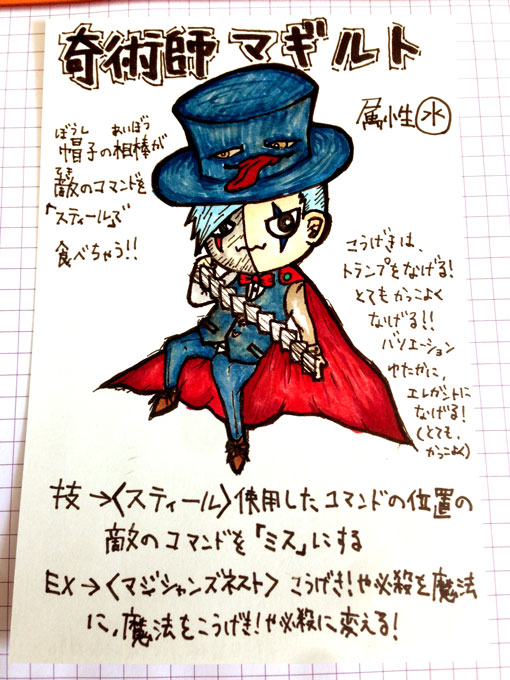 奇術師 マギルト
属性 水
ぼうし あいぼう
帽子の相棒が
てき
敵のコマンドを
「スティール」で
食べちゃう!!
こうげきは、
トランプをなげる!
とてもかっこよく
なげる!!
バリエーション
ゆたかに、
エレガントに
なげる!
(とても、
かっこよく)
技→〈スティール〉使用したコマンドの位置の
敵のコマンドを「ミス」にする
EX→〈マジシャンズネスト〉こうげき!や必殺を魔法
に、魔法をこうげき!や必殺に変える!